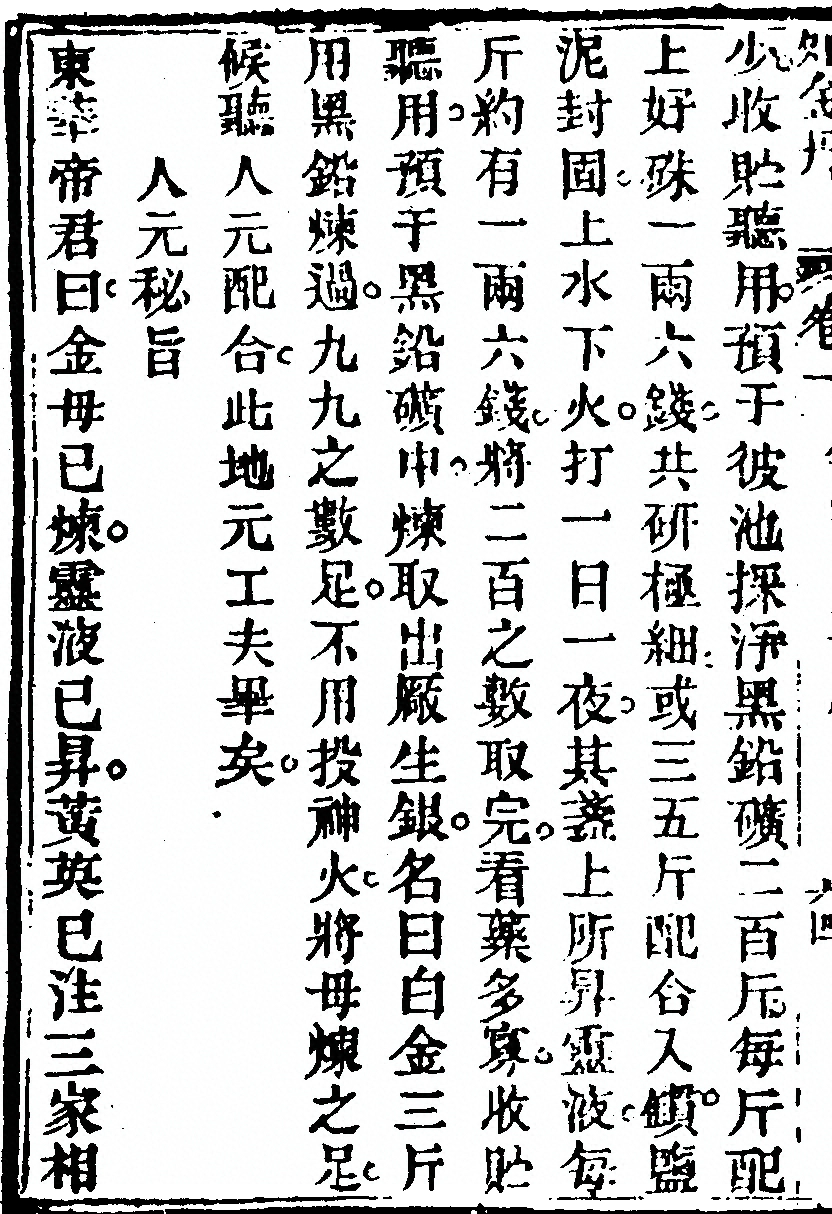 少收貯聽用預于彼池採淨黑鉛礦二百斤每斤配
上好硃一兩六錢共研極細或三五斤配合入鑵鹽
泥封固上水下火打一日一夜其盞上所昇靈液每
斤約有一兩六錢將二百之數取完看藥多寡收貯
聽用預于黑鉛礦中煉取出厰生銀名曰白金三斤
用黑鉛煉過九九之數足不用投神火將母煉之足
候聽人元配合此地元工夫畢矣
人元秘旨
東華帝君曰金母已煉靈液已昇黃英已注三家相